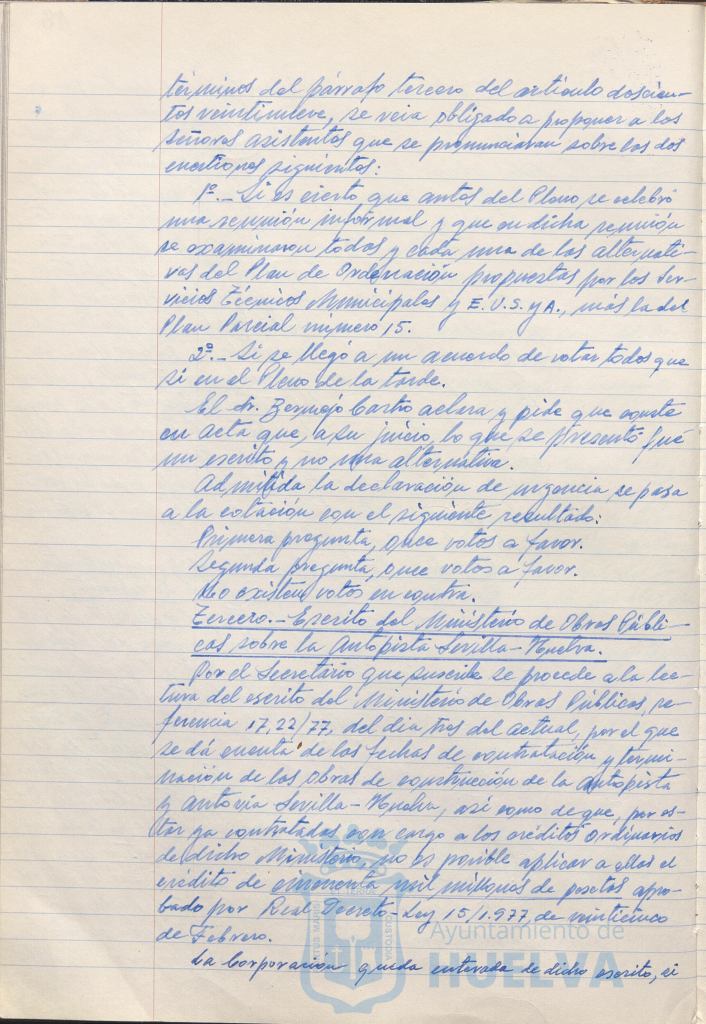 términos del párrafo tercero del artículo doscien-
tos veintinueve, se veia obligado a proponer a los
señores asistentes que se pronunciaran sobre las dos
cuestiones siguientes:
1º.- Si es cierto que antes del Pleno se celebró
una reunión informal y que en dicha reunión
se examinaron todas y cada una de las alternati-
vas del Plan de Ordenación propuestas por los Ser-
vicios Técnicos Municipales y E.U.S.yA., más la del
Plan Parcial número 15.
2º.- Si se llegó a un acuerdo de votar todos que
si en el Pleno de la tarde.
El Sr. Bermejo Castro aclara y pide que conste
en acta que, a su juicio, lo que se presentó fué
un escrito y no una alternativa.
Admitida la declaración de urgencia se pasa
a la votación con el siguiente resultado:
Primera pregunta, once votos a favor.
Segunda pregunta, once votos a favor.
No existen votos en contra.
Tercero.- Escrito del Ministerio de Obras Públi-
cas sobre la Autopista Sevilla-Huelva.
Por el Secretario que suscribe se procede a la lec-
tura del escrito del Ministerio de Obras Públicas, re-
ferencia 17,22/77, del dia tres del actual, por el que
se dá cuenta de las fechas de contratación y termi-
nación de las obras de construcción de la Autopista
y autovia Sevilla-Huelva, así como de que, por es-
tar ya contratadas con cargo a los créditos ordinarios
de dicho Ministerio, no es posible aplicar a ellas el
crédito de cincuenta mil millones de pesetas apro-
bado por Real Decreto-Ley 15/1.977, de veinticinco
de Febrero.
La Corporación queda enterada de dicho escrito, si
Ayuntamiento de
HUELVA